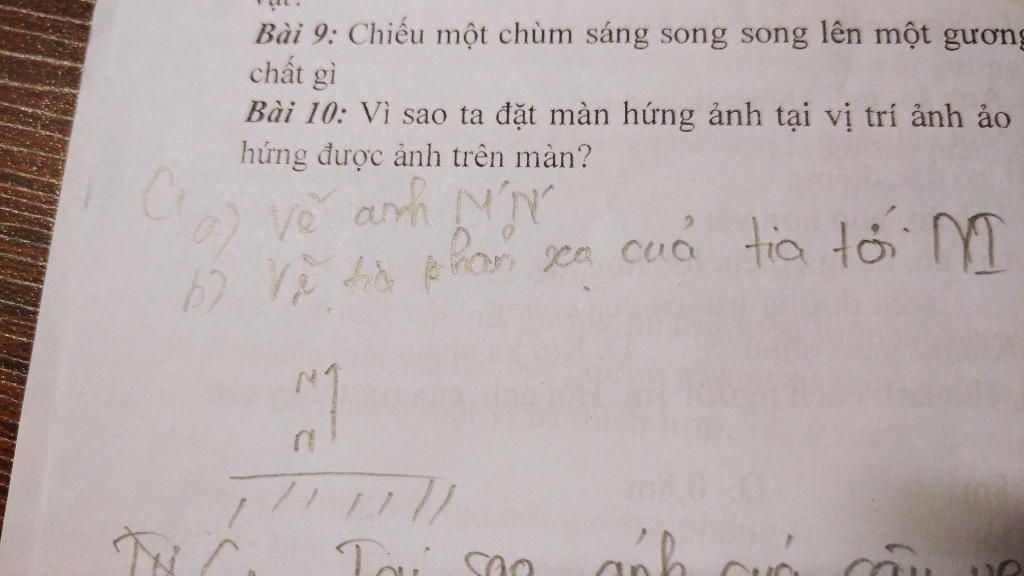 Bài 9: Chiếu một chùm sáng song song lên một gương
chất gì
Bài 10: Vì sao ta đặt màn hứng ảnh tại vị trí ảnh ảo
hứng được ảnh trên màn?
C,
a) Vẽ anh M'N'
b) Vẽ tia phản xạ cuả tia tới MI
M
N
Tại sao ảnh cuả